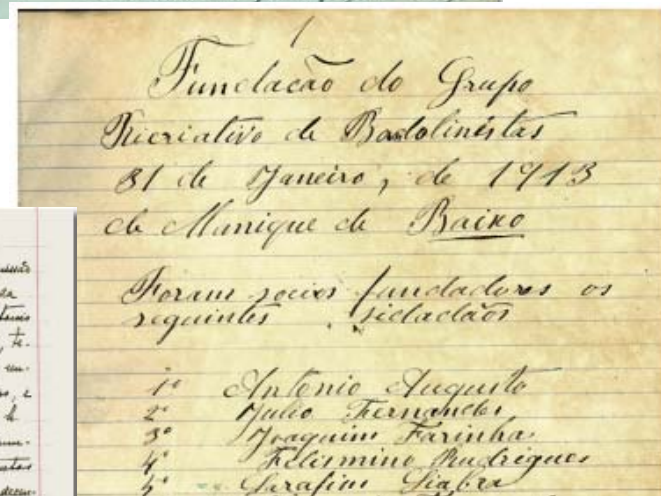 1
Fundacão do Grupo
Ricriativo de Badolinistas
31 de Janeiro, de 1913
de Manique de Baixo
Foram socios fundadores os
seguintes sidadãos
1º Antonio Augusto
2º Julio Fernandes
3º Joaquim Farinha
4º Felismino Rudrigues
5º Sarafim Siabra